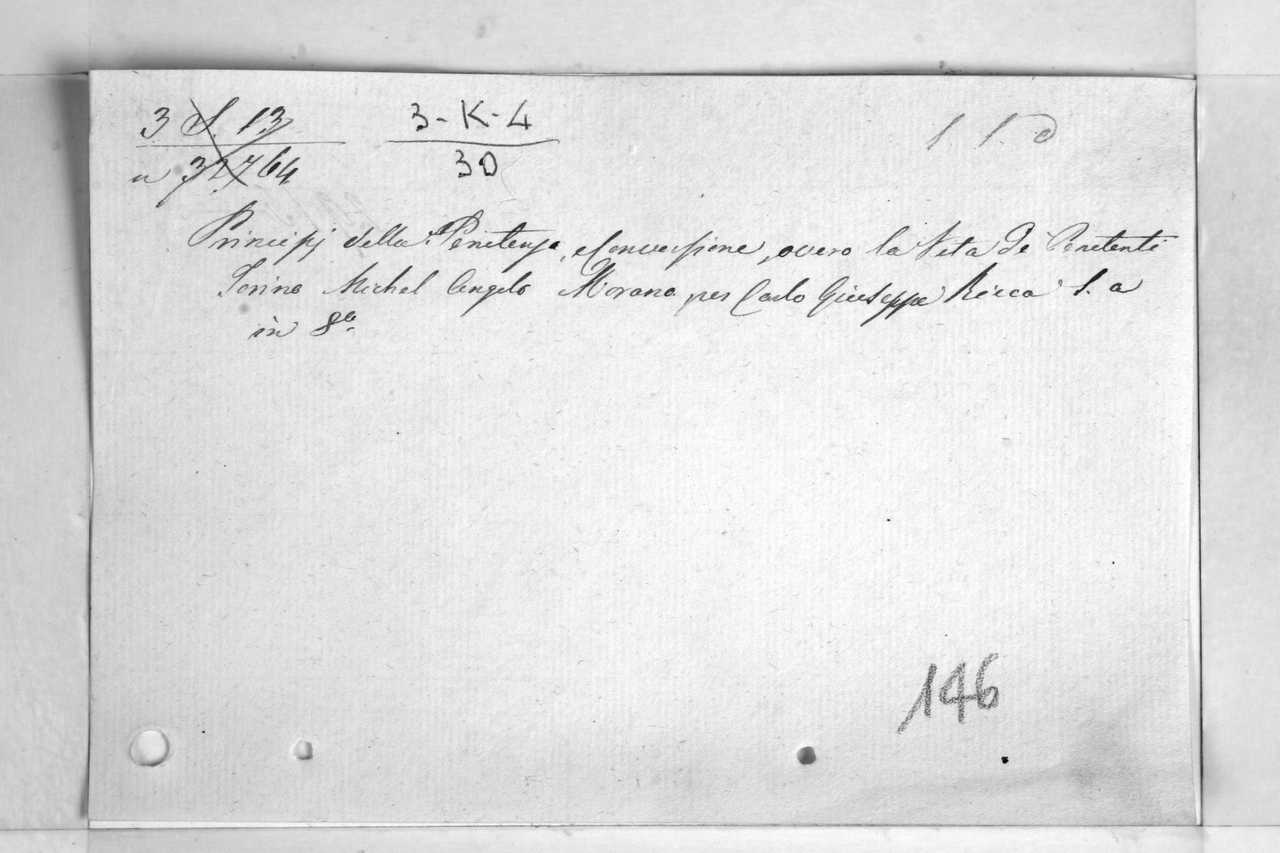 3 S. 13
n 32764
3-K-4
30
Principj della Penitenza, e Conversione, overo la Vita di Penitenti
Torino Michel Angelo Morano per Carlo Giuseppe Ricca S. a
in 8º
146